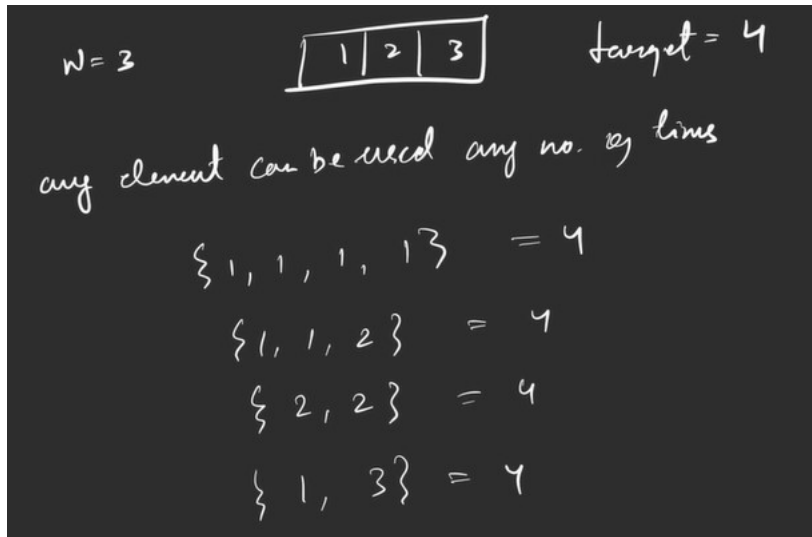 N = 3 1 2 3 target = 4
any element can be used any no. of times
{1, 1, 1, 1} = 4
{1, 1, 2} = 4
{2, 2} = 4
{1, 3} = 4